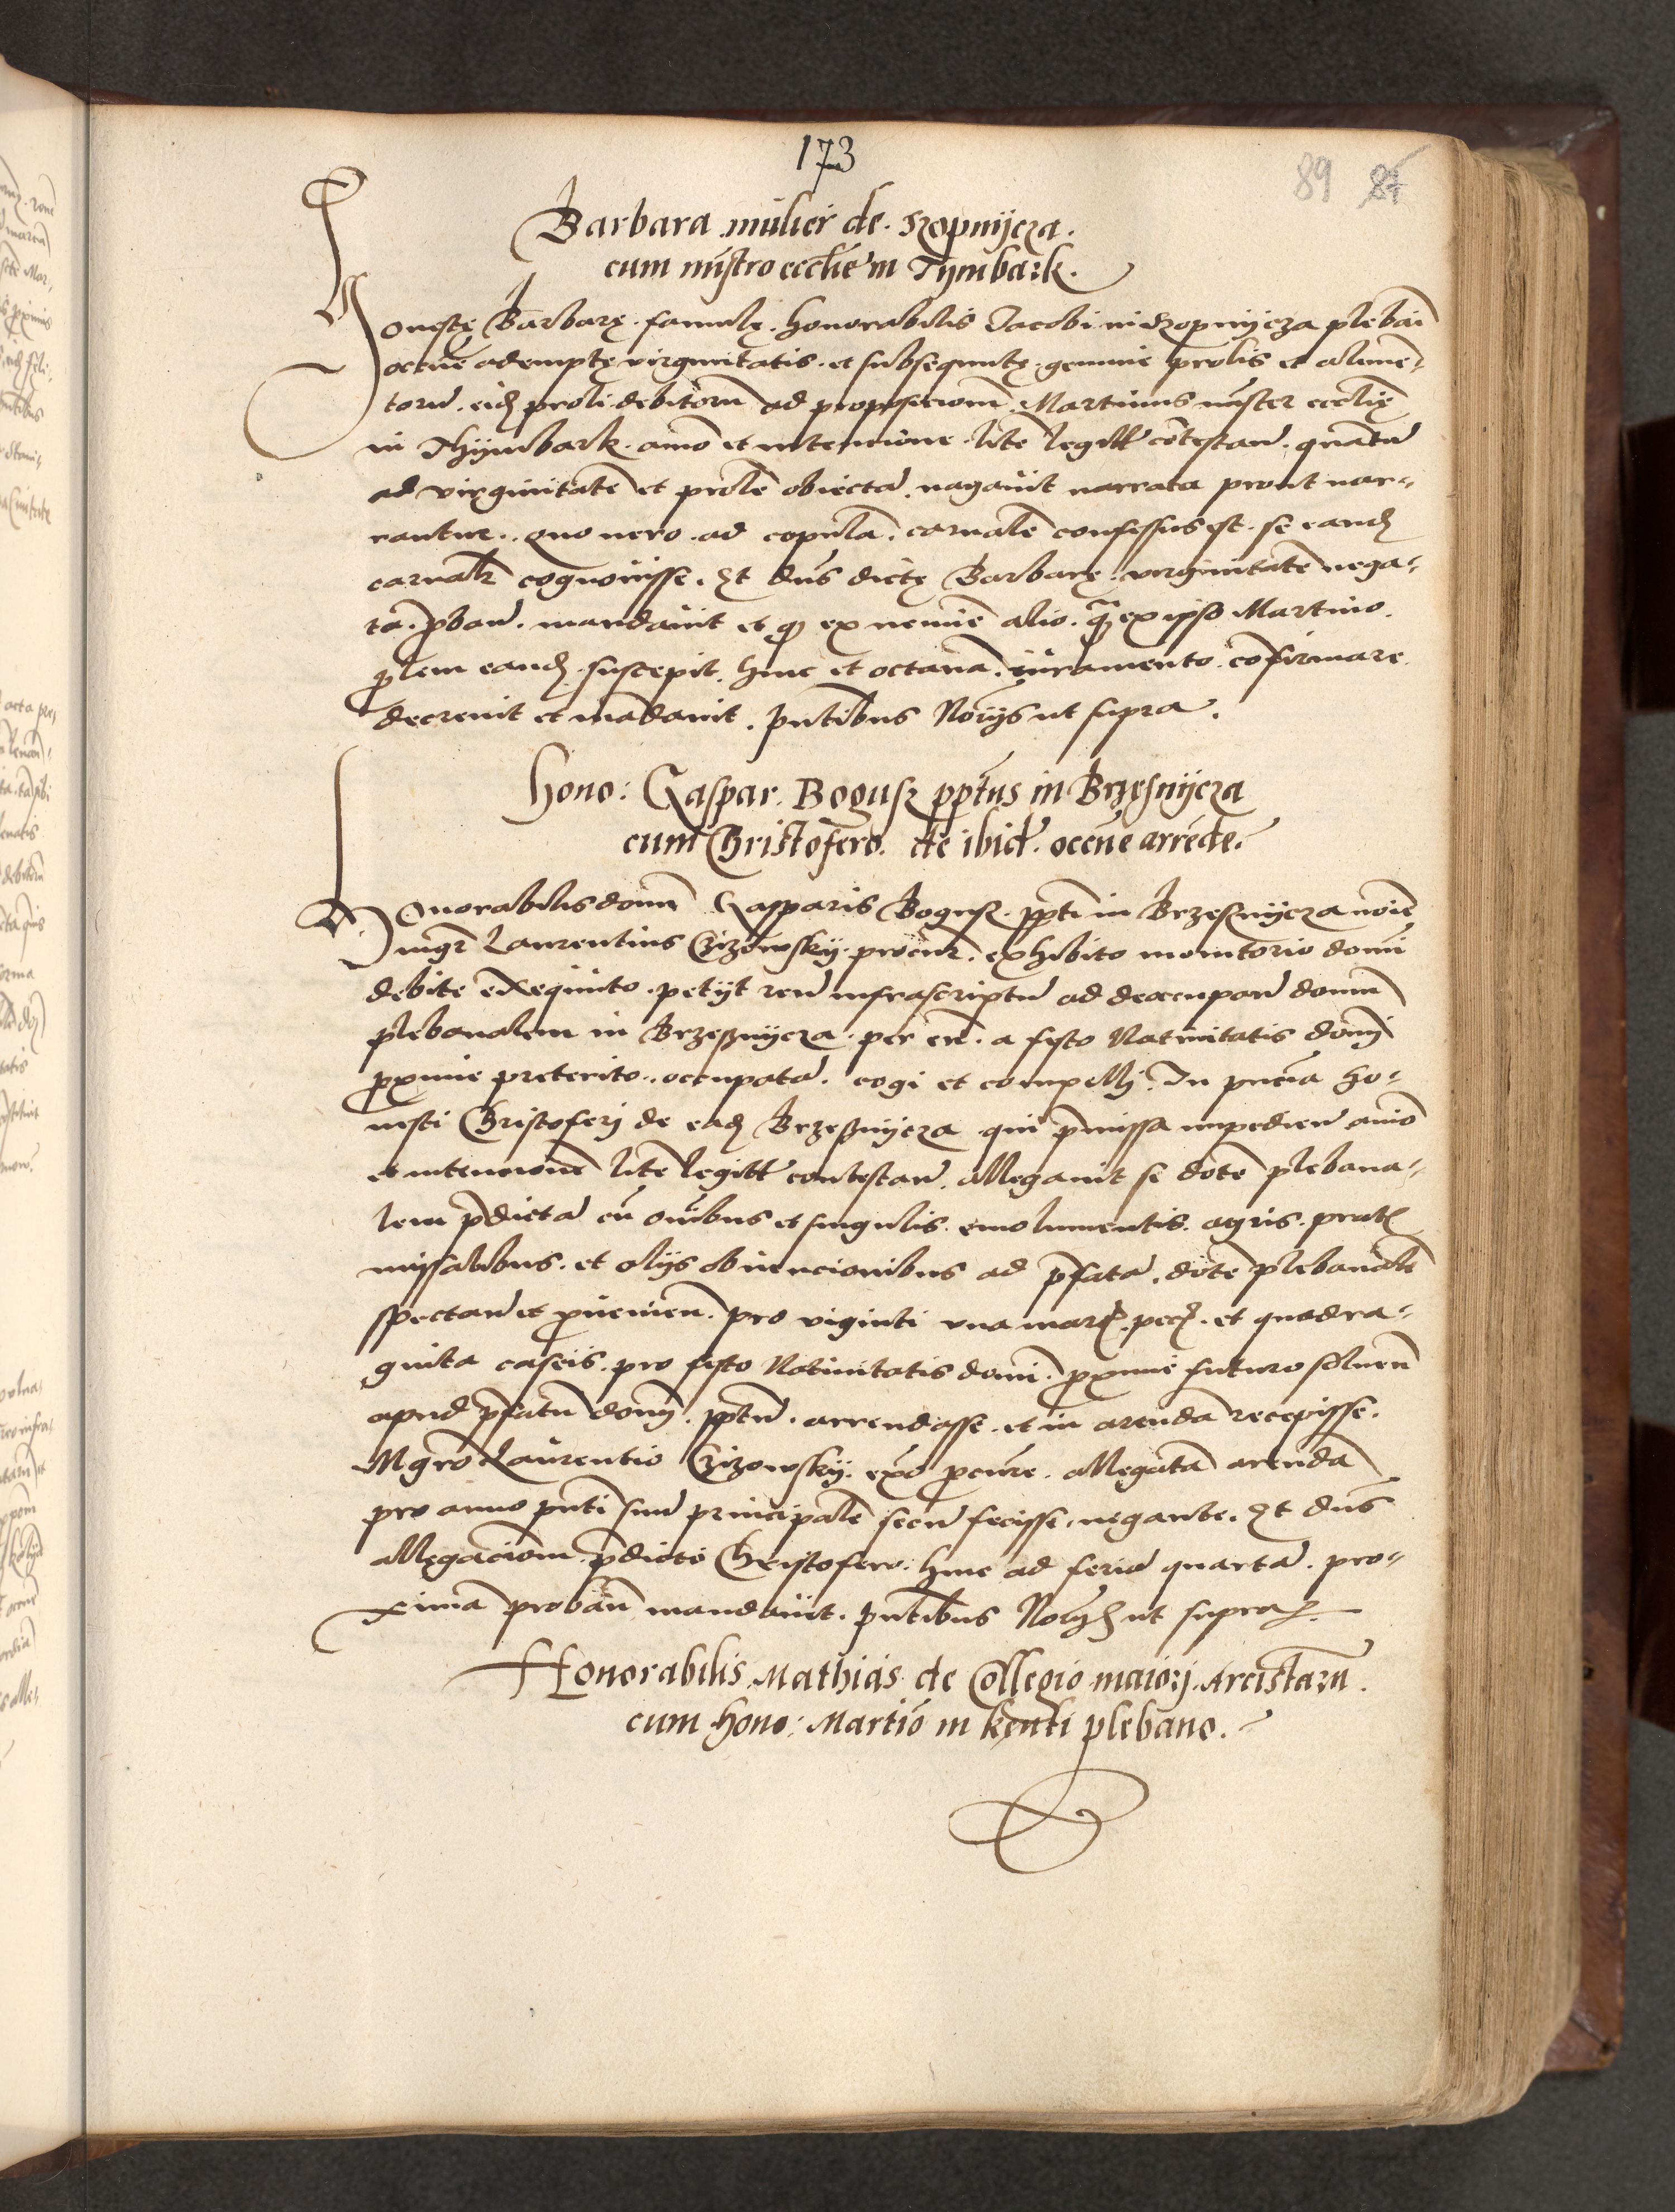 173
89 87
Barbara mulier de Szopnijcza.
cum mīstro eccl̄ie in Tÿmbark.
Honestę Barbarę famulę honorabilis Jacobi in Szopnijcza plebāi
occ̄ne ademptę virginitatis et subsequutę geminie prolis et alimē⸗
torū eid̄ proli debitorū ad proposicionē Martinus mīster eccl̄ię
in Thijmbark animo et intencione litē legitt̄ cōtestan̄ quātū
ad virginitatē et prolē obiectā, nagavit narrata prout nar⸗
rantur. Quo uero ad copulā carnalē confessus est se eand̄
carnalr̄ cognovisse. Et dn̄s dictę Barbarę virginitatē nega⸗
tā p̄ban̄ mandavit et q̄ ex nemine alio q̄ ex ipso Martino
p̄lem eand̄ suscepit hinc et octavā iuramento cōfirmare
decrevit et mādavit. pn̄tibus Nōrijs ut supra.
Hono: Gaspar Bogusz pp̄tus in Brzęsnijcza
cum Christofero de ibid̄ occ̄ne arrēde.
Honorabilis domī Gasparis Bogusz pp̄ti in Brzesznijcza noīe
mgr̄ Laurentius Czizowskij procur̄ exhibito monitorio domī
debite exequuto petijt reū infrascriptū ad deoccupan̄ domū
plebanalem in Brzesznijcza per eū a festo Nativitatis domī
p̄xime preterito occupatā cogi et compellj. In pn̄cia ho⸗
nesti Christoferj de ead̄ Brzesznijcza qui p̄missa impedien̄ aīo
et intencione litē legitt̄ contestan̄ allegavit se dotē plebana⸗
lem p̄dictā cū oībus et singulis emolumentis agris prat̄
missalibus et alijs obvencionibus ad p̄fatā dotē plebanalē
spectan̄ et p̄uenien̄ pro viginti una marc̄ pec̄ et quadra⸗
ginta caseis pro festo Nativitatis domī p̄xime futuro soluen̄
apud p̄fatū domī pp̄tū arrendasse et in arendā recepisse.
Mgrō Laurentio Czizowskij ex̄o p̄cur̄e allegatā arendā
pro anno pn̄ti suū principalē secū fecisse negante. Et dn̄s
allęgacionē p̄dicto Christofero hinc ad feriā quartā pro⸗
ximā probān̄ mandavit. pn̄tibus Nōrijs ut supra.
Honorabilis Mathias de Collegio maiorj Arcistarū
cum hono: Martīo in Kenti plebano.